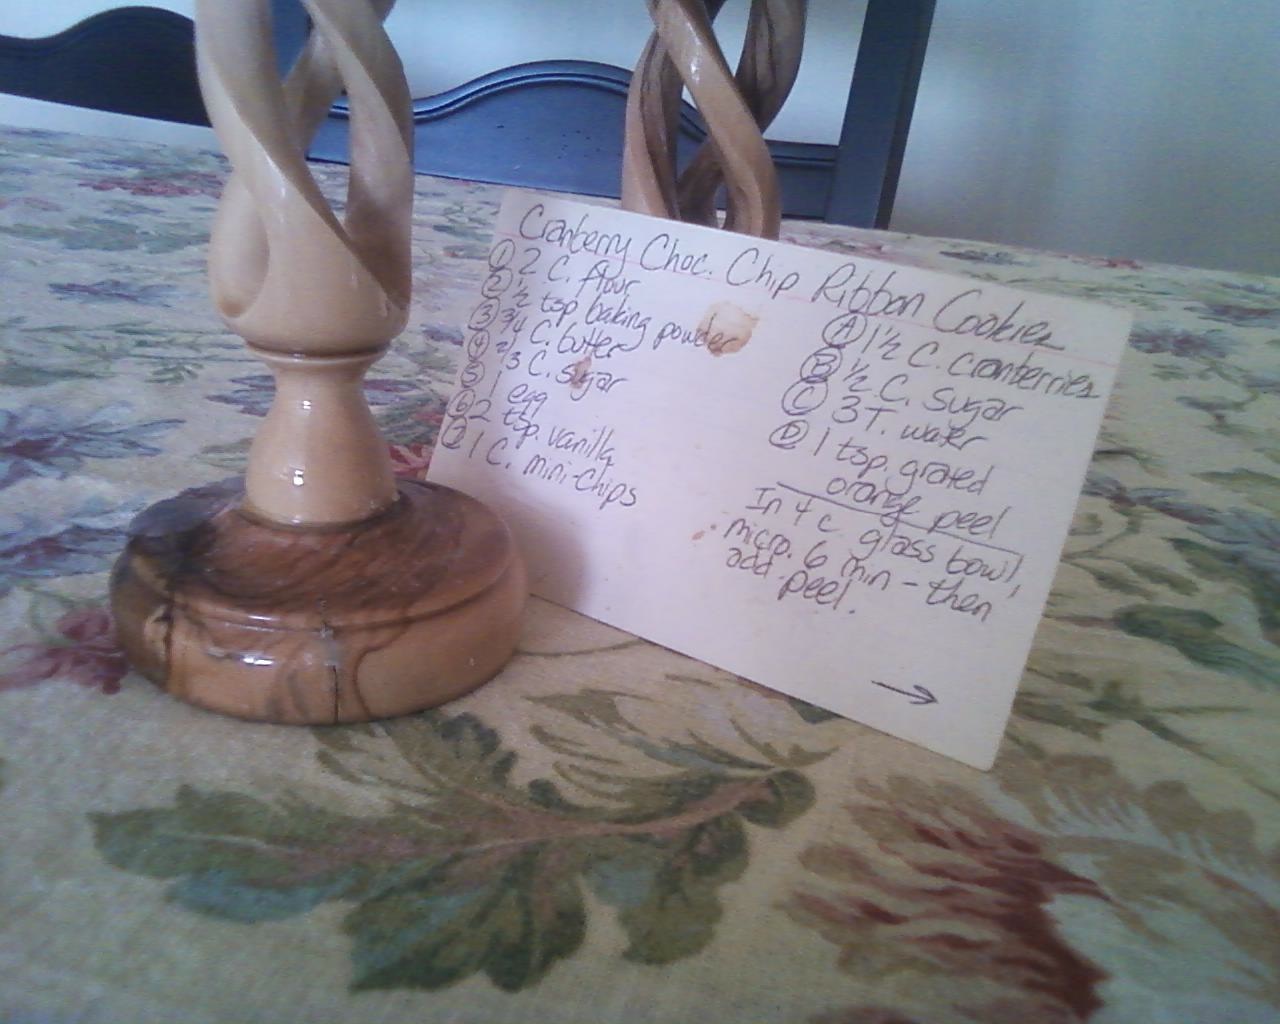 Cranberry Choc. Chip Ribbon Cookies
① 2 C. flour
② ½ tsp baking powder
③ ¾ C. butter
④ ⅔ C. sugar
⑤ 1 egg
⑥ 2 tsp. vanilla
⑦ 1 C. mini-chips
Ⓐ 1½ C. cranberries
Ⓑ ½ C. sugar
Ⓒ 3 T. water
Ⓓ 1 tsp. grated
orange peel
In 4 c glass bowl,
micro. 6 min - then
add peel.
→